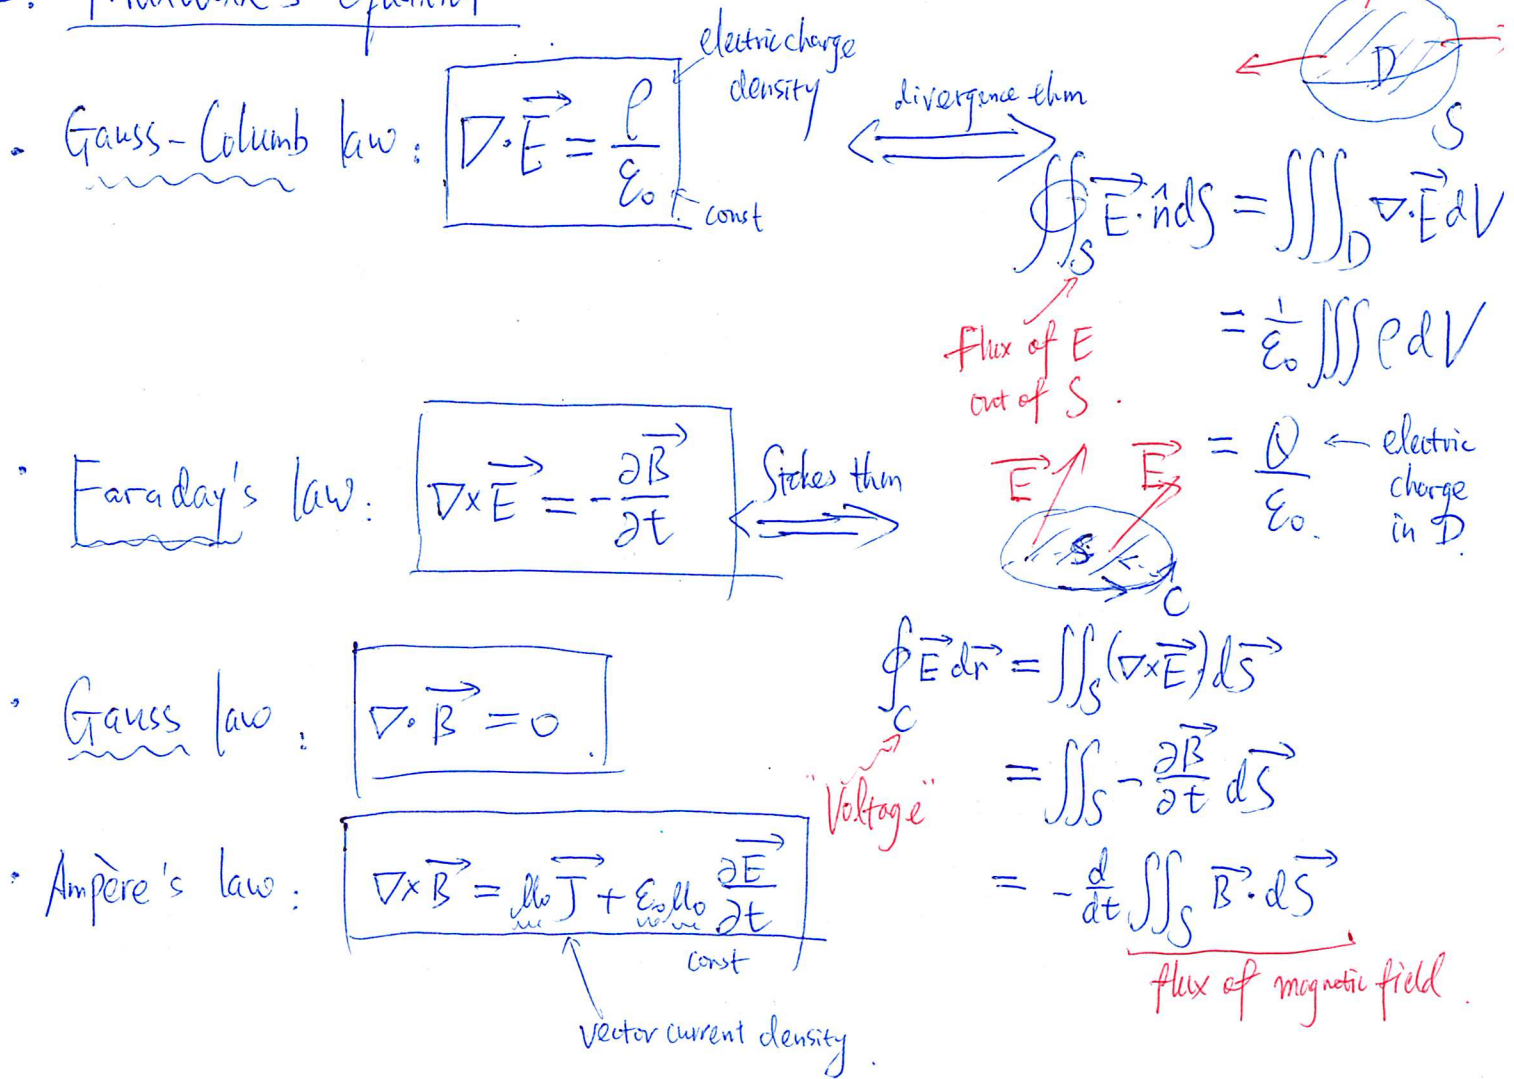 Maxwell's Equation
• Gauss-Columb law: ∇·E⃗ = ρ/ε₀
electric charge
density
const
divergence thm
D
S
∯_S E⃗·n̂ dS = ∭_D ∇·E⃗ dV
= 1/ε₀ ∭ ρ dV
= Q/ε₀. ← electric
charge
in D.
flux of E
out of S.
• Faraday's law: ∇×E⃗ = -∂B⃗/∂t
Stokes thm
E⃗ E⃗
S
C
∮_C E⃗ dr⃗ = ∬_S (∇×E⃗) dS⃗
= ∬_S -∂B⃗/∂t dS⃗
= -d/dt ∬_S B⃗·dS⃗
"Voltage"
flux of magnetic field.
• Gauss law: ∇·B⃗ = 0.
• Ampère's law: ∇×B⃗ = μ₀J⃗ + ε₀μ₀ ∂E⃗/∂t
const
vector current density.